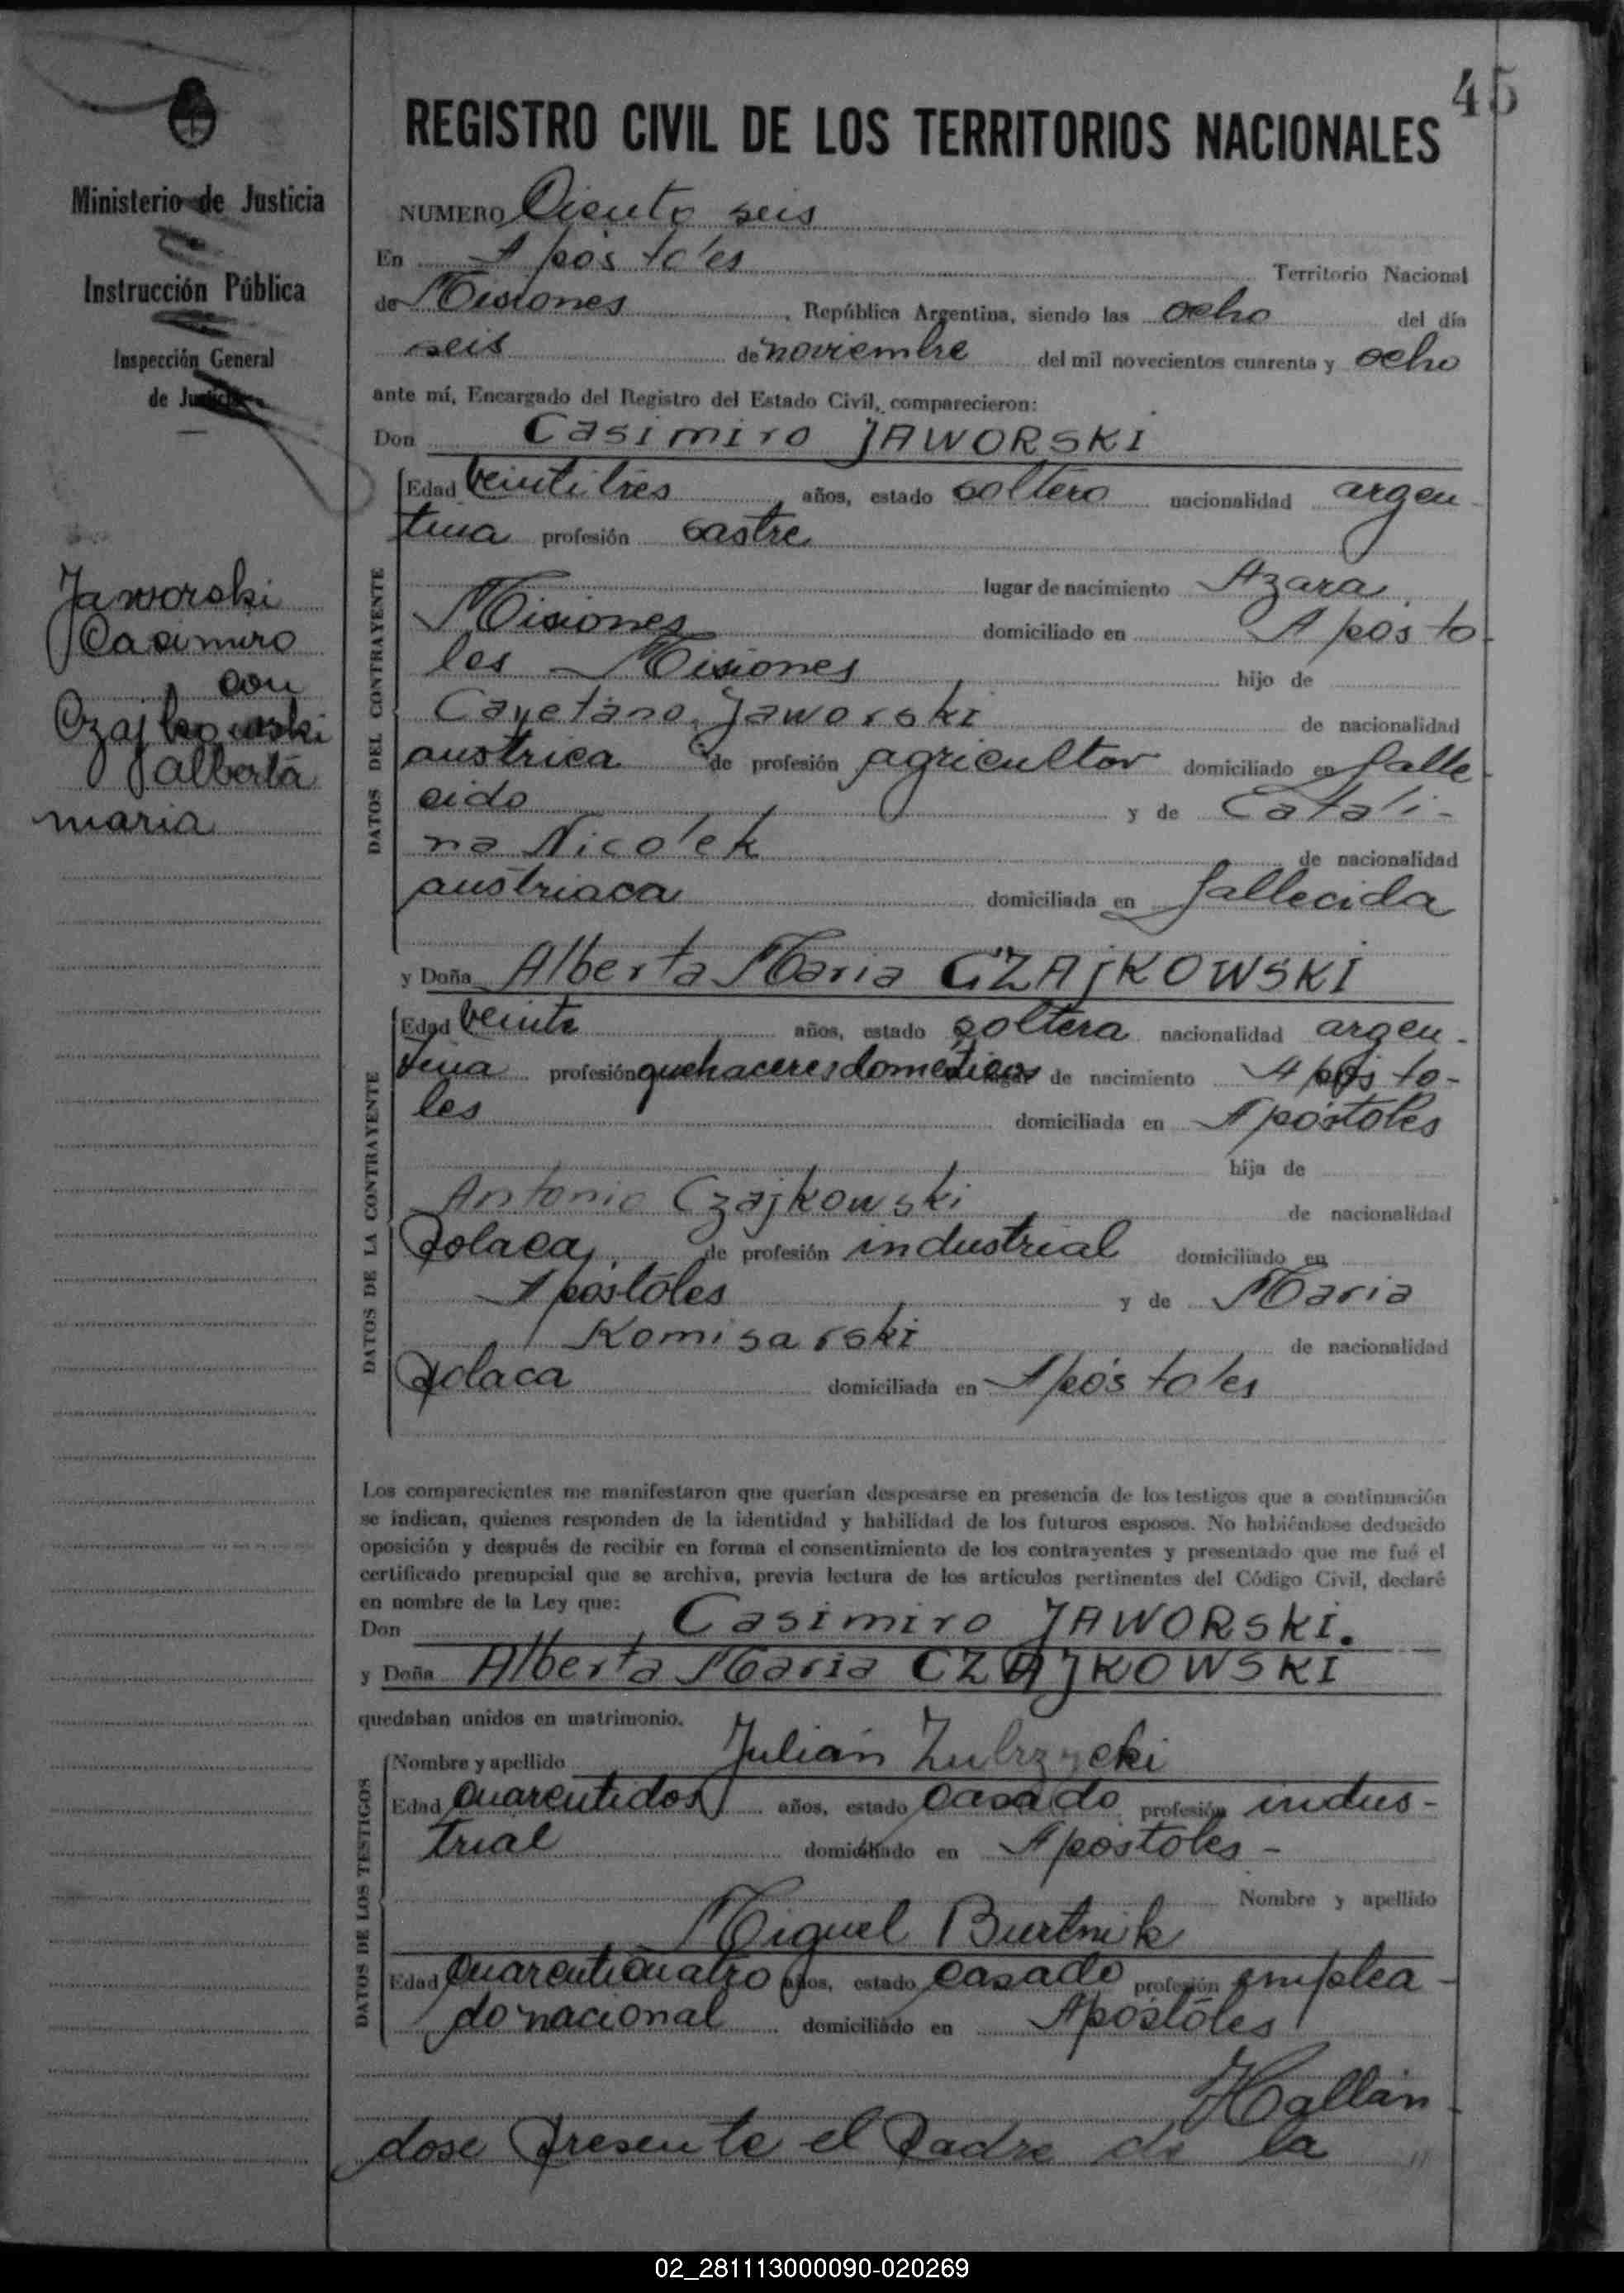 45
REGISTRO CIVIL DE LOS TERRITORIOS NACIONALES
Ministerio de Justicia
Instrucción Pública
Inspección General
de Justicia
Jaworski
Casimiro
con
Czajkowski
Alberta
maria
NUMERO Ciento seis
En Apóstoles Territorio Nacional
de Misiones, República Argentina, siendo las ocho del día
seis de noviembre del mil novecientos cuarenta y ocho
ante mí, Encargado del Registro del Estado Civil, comparecieron:
Don Casimiro JAWORSKI
DATOS DEL CONTRAYENTE
Edad veintitres años, estado soltero nacionalidad argen-
tina profesión sastre
lugar de nacimiento Azara,
Misiones domiciliado en Aposto-
les - Misiones hijo de
Cayetano Jaworski de nacionalidad
austrica de profesión agricultor domiciliado en falle-
cido y de Catali-
na Nicolek de nacionalidad
austriaca domiciliada en fallecida
y Doña Alberta Maria CZAJKOWSKI
DATOS DE LA CONTRAYENTE
Edad veinte años, estado soltera nacionalidad argen-
tina profesión quehaceres domésticos lugar de nacimiento Aposto-
les domiciliada en Apóstoles
hija de
Antonio Czajkowski de nacionalidad
polaca, de profesión industrial domiciliado en
Apóstoles y de Maria
Komisarski de nacionalidad
polaca domiciliada en Apóstoles
Los comparecientes me manifestaron que querían desposarse en presencia de los testigos que a continuación
se indican, quienes responden de la identidad y habilidad de los futuros esposos. No habiéndose deducido
oposición y después de recibir en forma el consentimiento de los contrayentes y presentado que me fué el
certificado prenupcial que se archiva, previa lectura de los artículos pertinentes del Código Civil, declaré
en nombre de la Ley que:
Don Casimiro JAWORSKI.
y Doña Alberta Maria CZAJKOWSKI
quedaban unidos en matrimonio.
DATOS DE LOS TESTIGOS
Nombre y apellido Julián Zubrzycki
Edad cuarentidos años, estado casado profesión indus-
trial domiciliado en Apóstoles-
Nombre y apellido
Miguel Burtnik
Edad cuarenticuatro años, estado casado profesión emplea-
do nacional domiciliado en Apóstoles
Hallán-
dose presente el padre de la
02_281113000090-020269